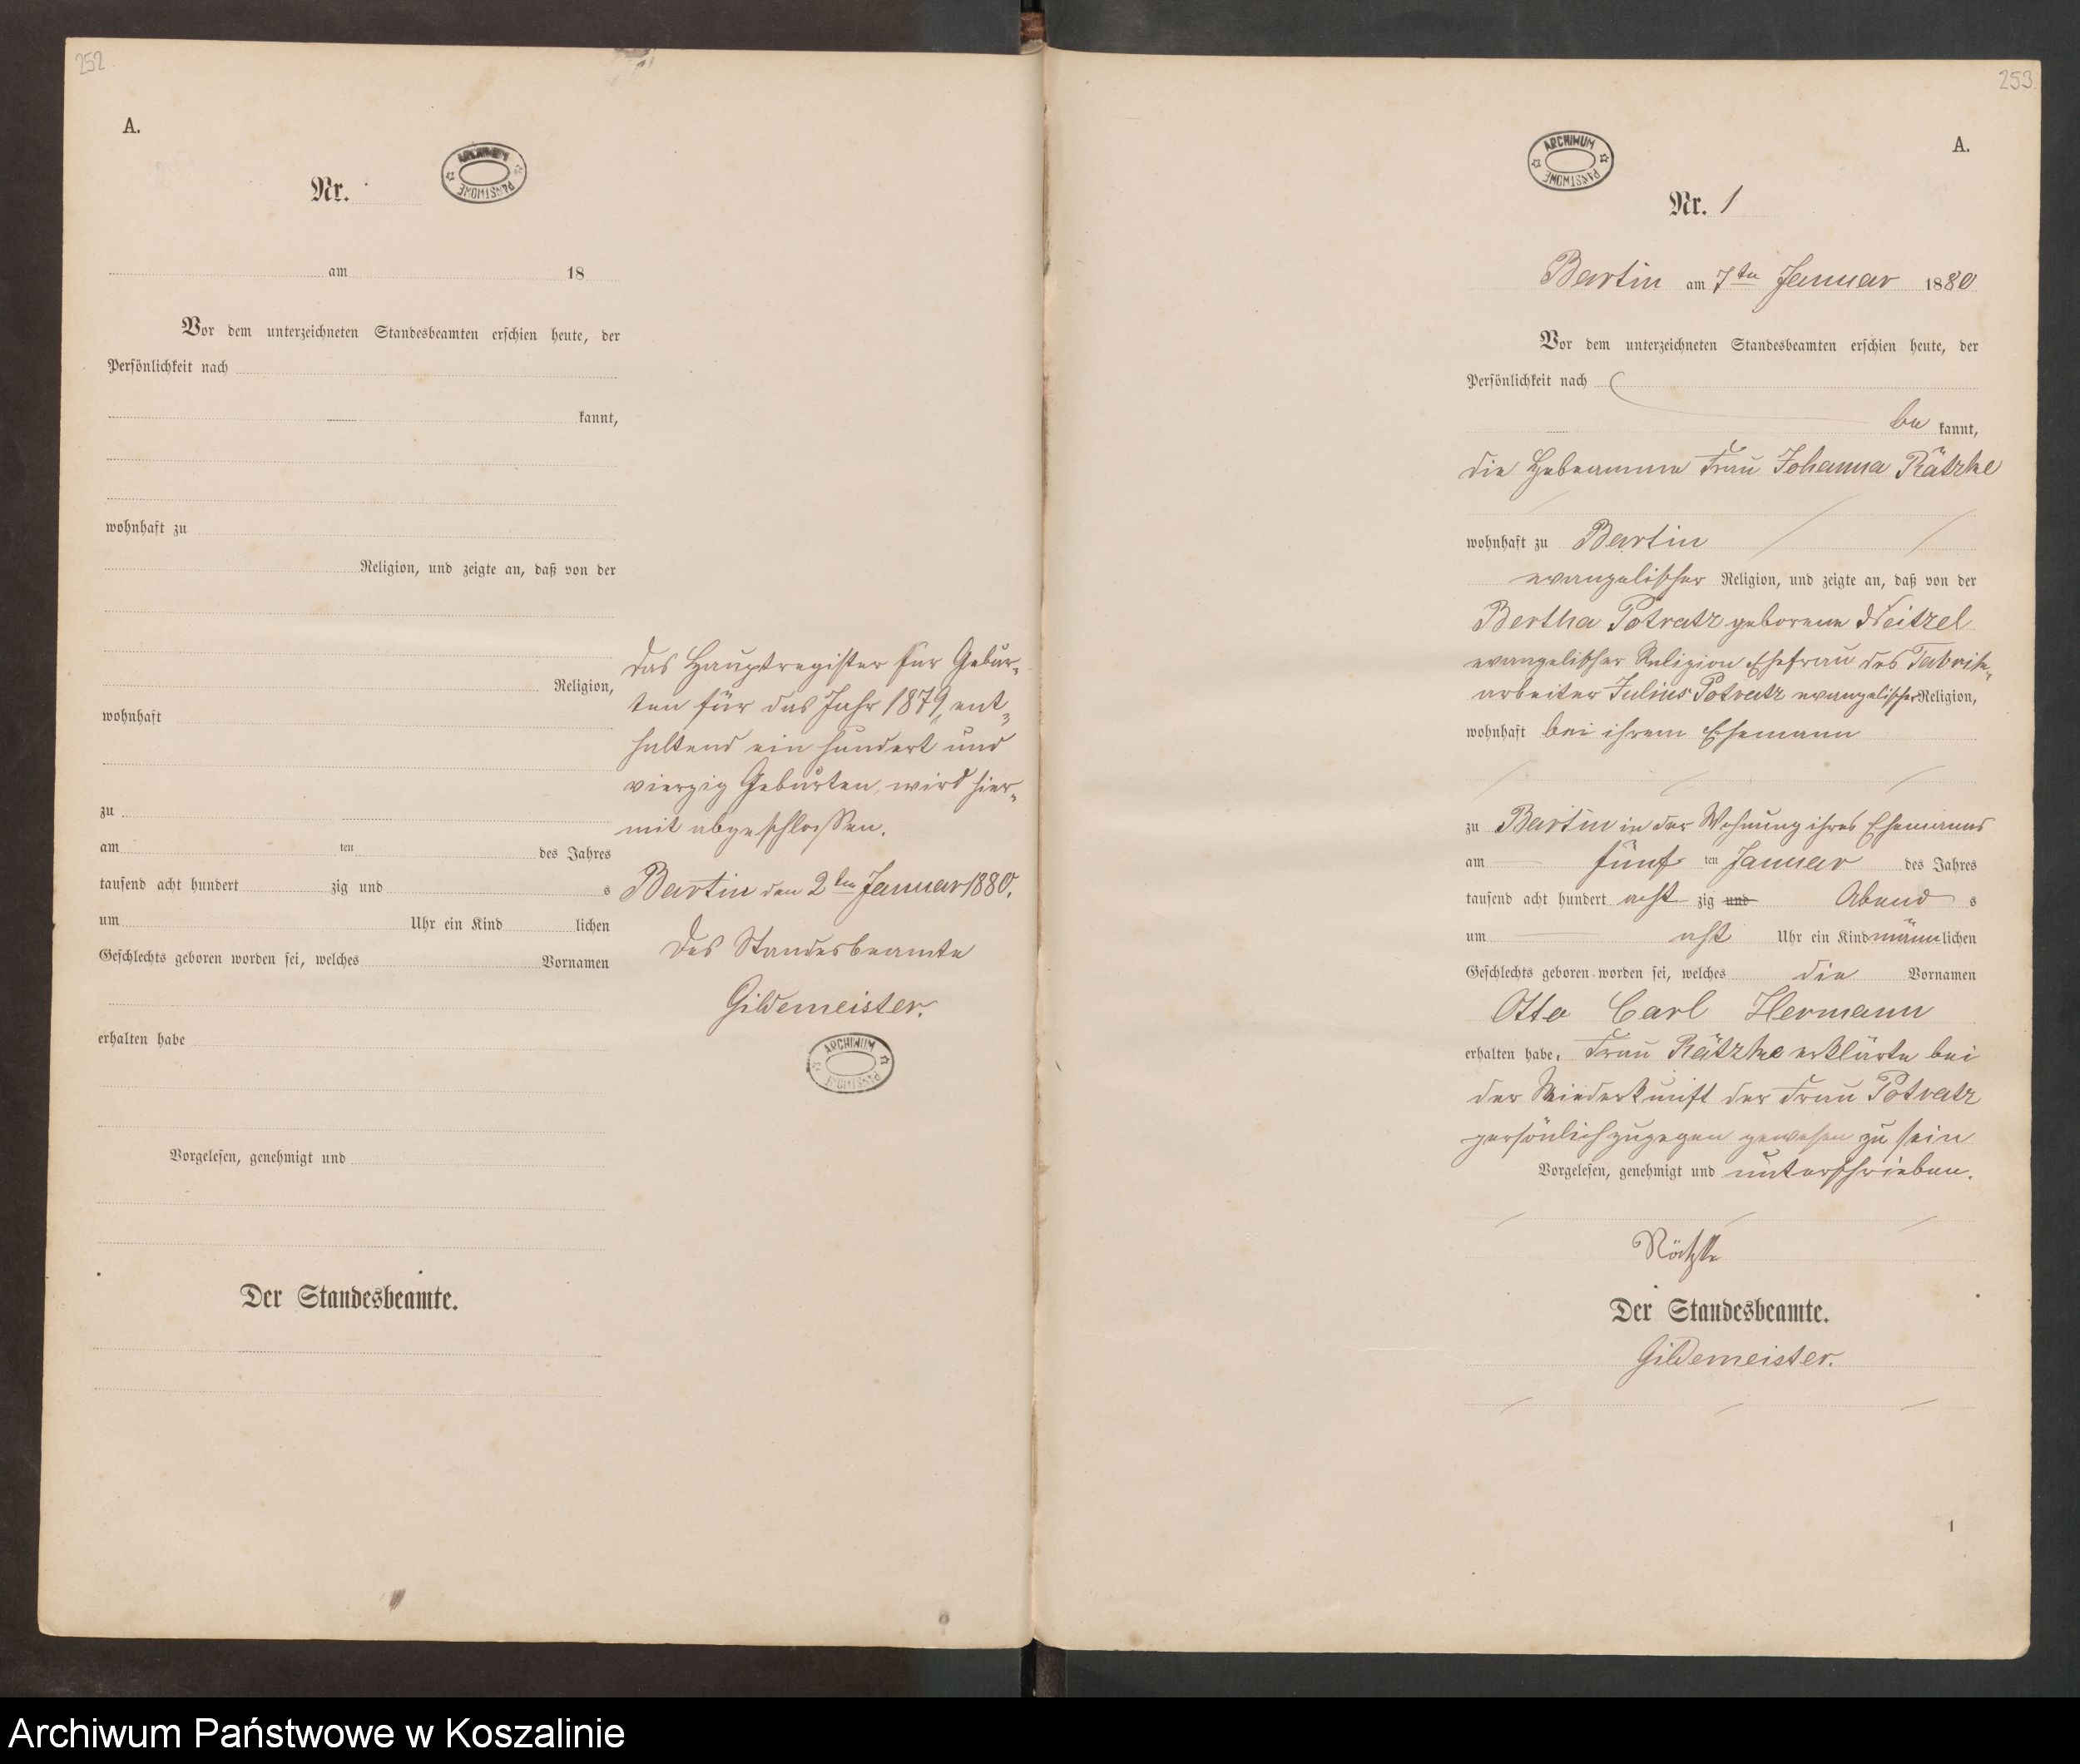 252.
A.
Nr.
ARCHIWUM
PAŃSTWOWE
am 18
Vor dem unterzeichneten Standesbeamten erschien heute, der
Persönlichkeit nach
kannt,
wohnhaft zu
Religion, und zeigte an, daß von der
Religion,
wohnhaft
zu
am ten des Jahres
tausend acht hundert zig und s
um Uhr ein Kind lichen
Geschlechts geboren worden sei, welches Vornamen
erhalten habe
Vorgelesen, genehmigt und
Der Standesbeamte.
Das Hauptregister für Gebur-
ten für das Jahr 1879, ent-
haltend ein hundert und
vierzig Geburten, wird hier-
mit abgeschlossen.
Bartin den 2ten Januar 1880.
Der Standesbeamte
Gildemeister.
ARCHIWUM
PAŃSTWOWE
253.
A.
ARCHIWUM
PAŃSTWOWE
Nr. 1
Bartin am 7ten Januar 1880
Vor dem unterzeichneten Standesbeamten erschien heute, der
Persönlichkeit nach
be kannt,
die Hebeamme Frau Johanna Rätzke
wohnhaft zu Bartin
evangelischer Religion, und zeigte an, daß von der
Bertha Potratz geborene Neitzel
evangelischer Religion Ehefrau des Fabrik-
arbeiter Julius Potratz evangelischer Religion,
wohnhaft bei ihrem Ehemann
zu Bartin in der Wohnung ihres Ehemanns
am fünf ten Januar des Jahres
tausend acht hundert acht zig und Abend s
um acht Uhr ein Kind männlichen
Geschlechts geboren worden sei, welches die Vornamen
Otto Carl Hermann
erhalten habe. Frau Rätzke erklärte bei
der Niederkunft der Frau Potratz
persönlich zugegen gewesen zu sein
Vorgelesen, genehmigt und unterschrieben.
Rätzke
Der Standesbeamte.
Gildemeister.
1
Archiwum Państwowe w Koszalinie